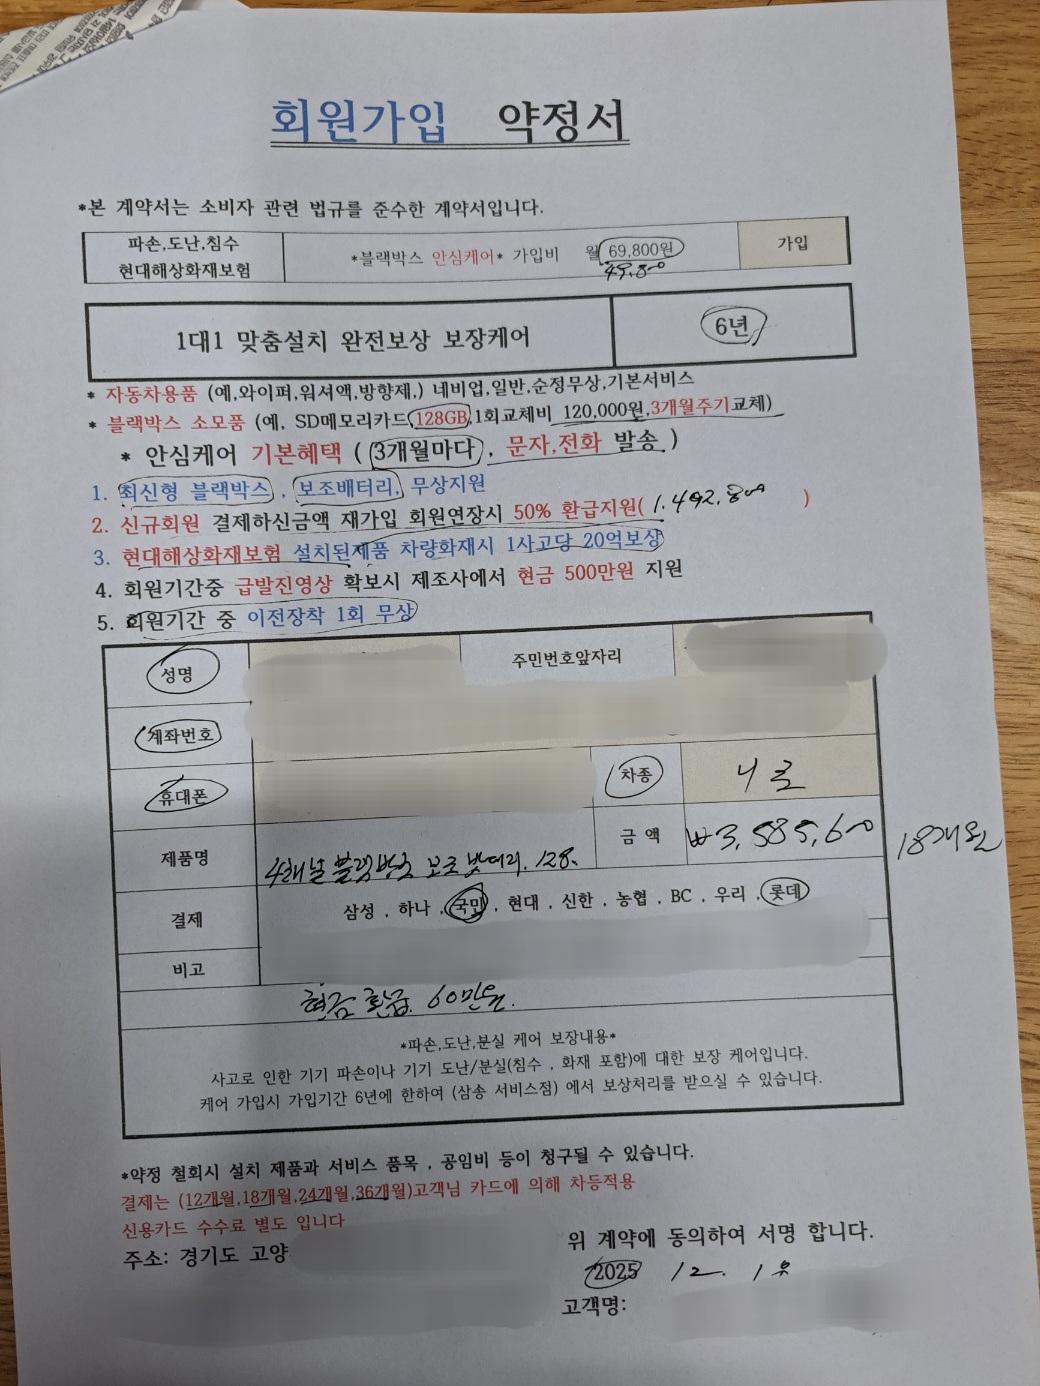 회원가입 약정서
*본 계약서는 소비자 관련 법규를 준수한 계약서입니다.
파손,도난,침수
현대해상화재보험
*블랙박스 안심케어* 가입비 월 69,800원
49,800
가입
1대1 맞춤설치 완전보상 보장케어
6년
* 자동차용품 (예,와이퍼,워셔액,방향제,) 네비업,일반,순정무상,기본서비스
* 블랙박스 소모품 (예, SD메모리카드 128GB,1회교체비 120,000원,3개월주기교체)
* 안심케어 기본혜택 ( 3개월마다 , 문자,전화 발송 )
1. 최신형 블랙박스 , 보조배터리, 무상지원
2. 신규회원 결제하신금액 재가입 회원연장시 50% 환급지원( 1.492,800 )
3. 현대해상화재보험 설치된제품 차량화재시 1사고당 20억보상
4. 회원기간중 급발진영상 확보시 제조사에서 현금 500만원 지원
5. 회원기간 중 이전장착 1회 무상
성명
주민번호앞자리
계좌번호
휴대폰
차종
니로
제품명
4채널 블랙박스 보조밧데리. 128.
금 액
₩3,585,600
18개월
결제
삼성 , 하나 , 국민 , 현대 , 신한 , 농협 , BC , 우리 , 롯데
비고
현금 환급 60만원.
*파손,도난,분실 케어 보장내용*
사고로 인한 기기 파손이나 기기 도난/분실(침수 , 화재 포함)에 대한 보장 케어입니다.
케어 가입시 가입기간 6년에 한하여 (삼송 서비스점) 에서 보상처리를 받으실 수 있습니다.
*약정 철회시 설치 제품과 서비스 품목 , 공임비 등이 청구될 수 있습니다.
결제는 (12개월,18개월,24개월,36개월)고객님 카드에 의해 차등적용
신용카드 수수료 별도 입니다
주소: 경기도 고양
위 계약에 동의하여 서명 합니다.
2025 12. 1
고객명: